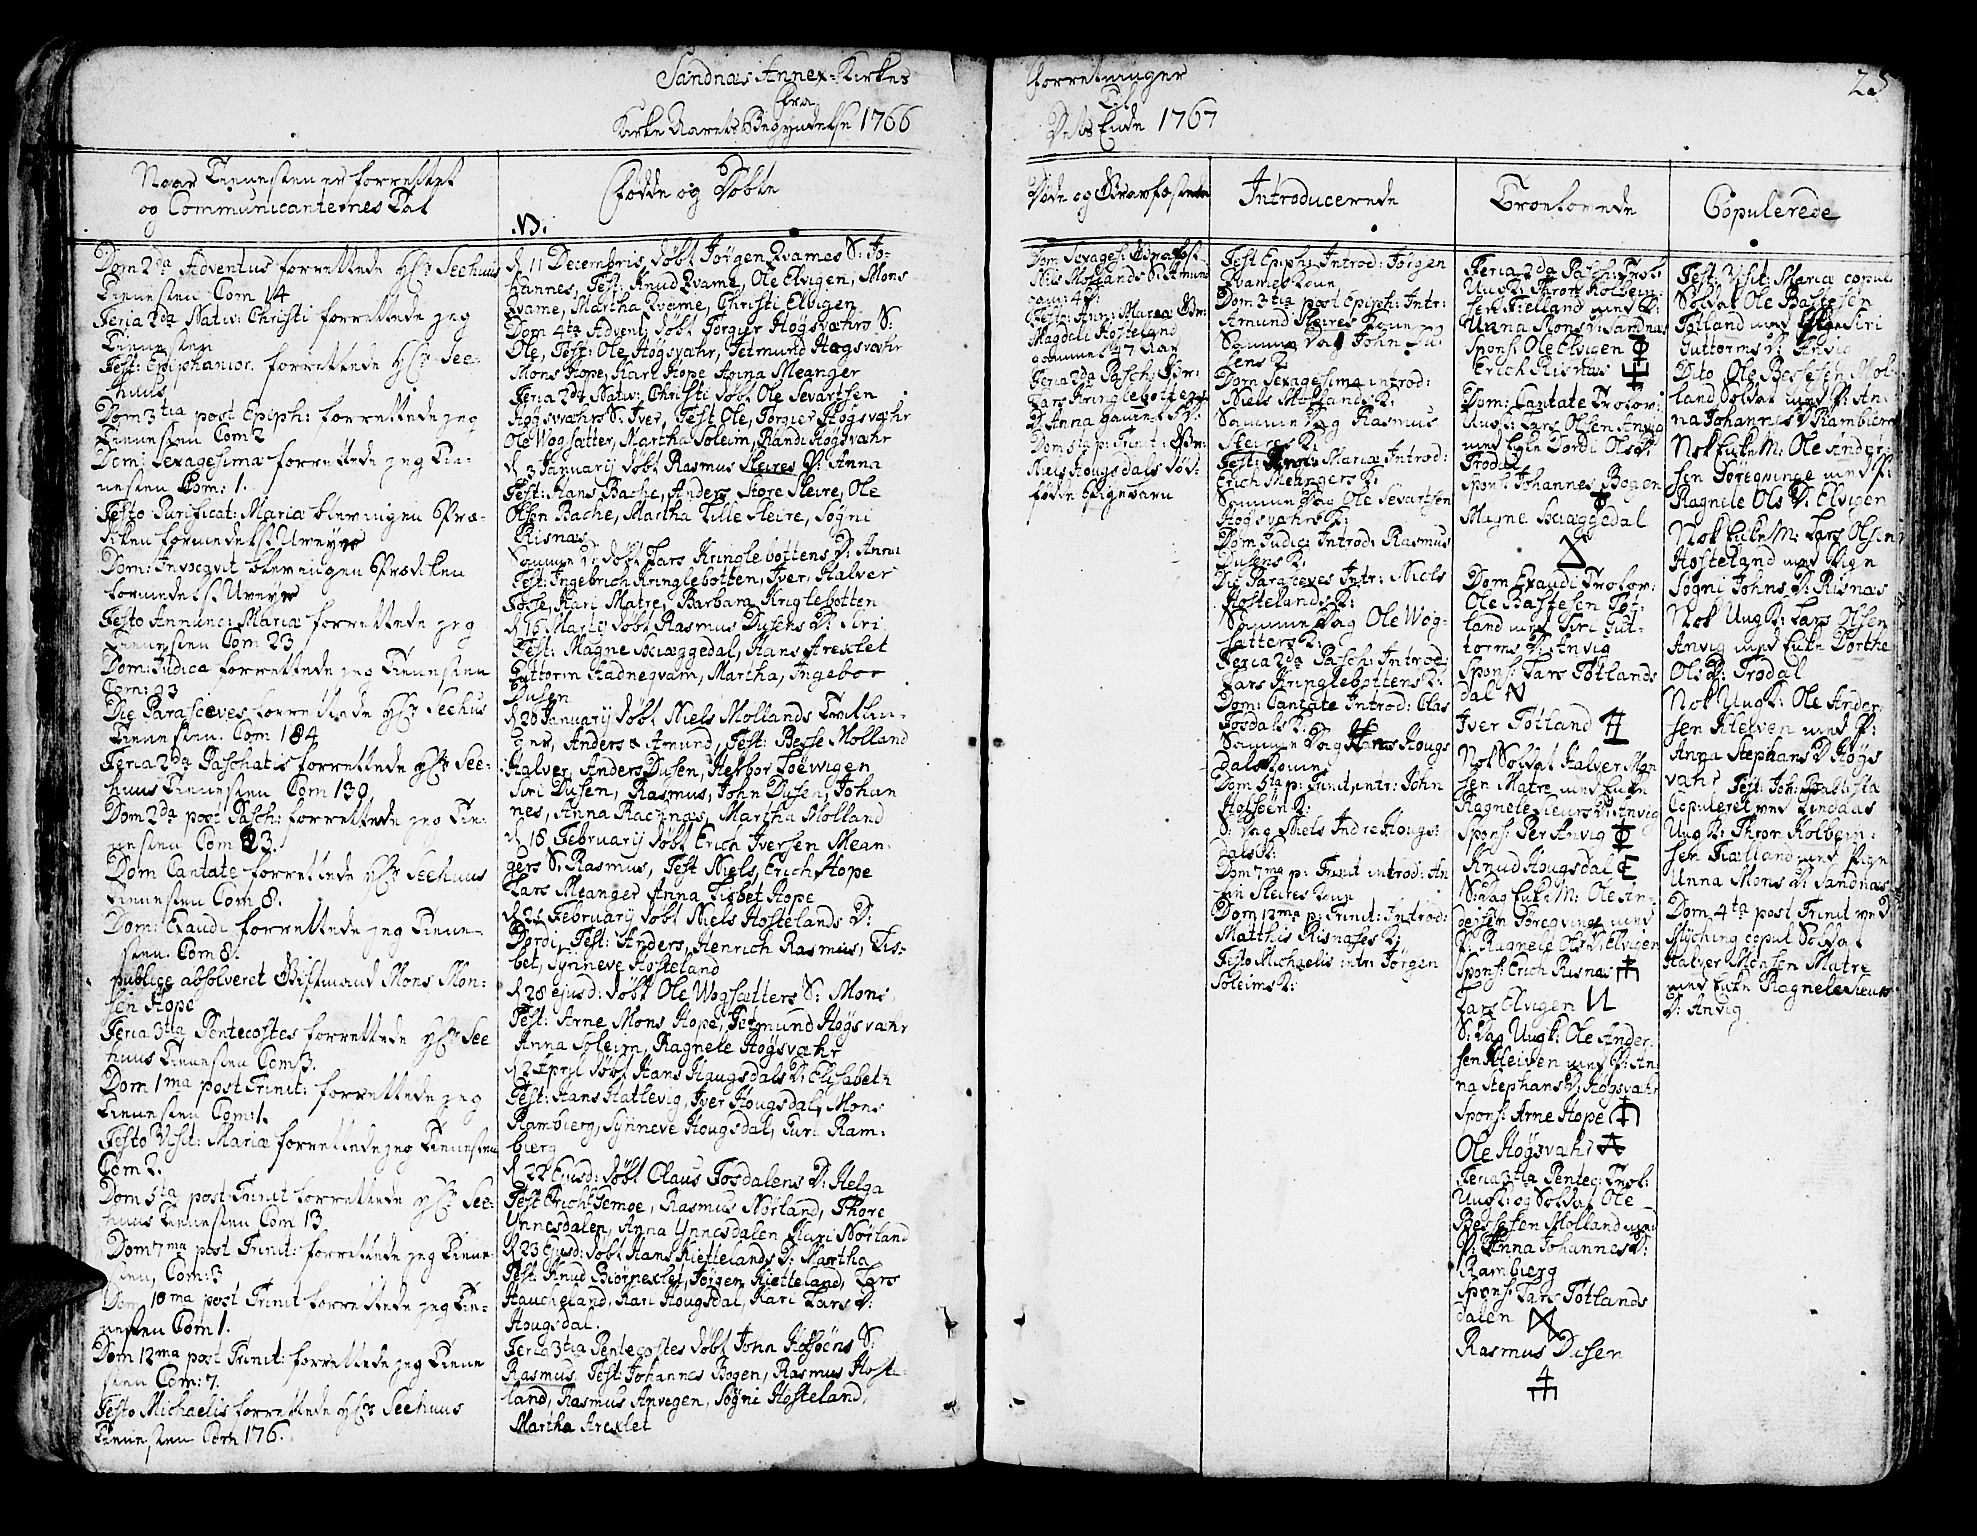 Sandnæs Annex-Kirkes
fra
Kirke Aarets Begyndelse 1766
Naar Tienesten er forrettet
og Communicanternes Tal
Fødde og Døbte
N.
Dom 2da Adventus forrettede Hr Seehuus
Tienesten Com 14
Feria 2da Nativ: Christi forrettede jeg
Tienesten
Fest: Epiphanior. forrettede Hr See-
huus
Dom 3tia post Epiph: forrettede jeg
Tienesten Com 2
Dom: Sexagesima forrettede jeg Tie-
nesten Com: 1.
Festo Purificat: Mariæ blev ingen Præ-
diken formedelst Uveyr
Dom: Invocavit blev ingen Prædiken
formedelst Uveyr
Festo Annunc: Mariæ forrettede jeg
Tienesten Com 23
Dom: Judica forrettede jeg Tienesten
Com: 23
Die Parasceves forrettede Hr Seehus
Tienesten. Com 184
Feria 2da Paschatis forrettede Hr See-
huus Tienesten Com 130
Dom 2da post Pasch: forrettede jeg Tie-
nesten Com 23.
Dom Cantate forrettede Hr Seehuus
Tienesten Com 8.
Dom: Exaudi forrettede jeg Tiene-
sten. Com 8.
publice absolveret Giftmand Mons Mon-
sen Hope
Feria 3tia Pentecostes forrettede Hr See
huus Tienesten Com 3.
Dom 1ma post Trinit: forrettede jeg
Tienesten Com: 1.
Festo Visit: Mariæ forrettede jeg Tienesten
Com 2.
Dom 5ta post Trinit forrettede Hr See-
huus Tienesten Com 13
Dom 7ma post Trinit: forrettede jeg Tiene-
sten, Com: 3
Dom 10ma post Trinit forrettede jeg Tie-
nesten Com 1.
Dom 12ma post Trinit: forrettede jeg Tiene
sten Com: 7.
Festo Michaelis forrettede Hr Seehuus
Tienesten Com 176.
d 11 Decembris døbt Jørgen Qvames S: Jo-
hannes, Test: Knud Qvame, Ole Elvigen, Mons
Qvame, Martha Qvame, Christi Elvigen
Dom 4ta Advent: døbt Torgier Høgsvæhrs S:
Ole, Test: Ole Høgsvæhr, Tetmund Høgsvæhr
Mons Hope, Kari Hope Anna Meanger
Feria 2da Nativ: Christi døbt Ole Sevartsen
Høgsvæhrs S: Iver, Test Ole, Torgier Høgsvæhr
Ole Wogsætter, Martha Soleim, Randi Høgsvæhr
d 3 Januarij døbt Rasmus Sleires D: Anna
Test: Hans Bache, Anders Store Sleire, Ole
Olsen Bache, Martha Lille Sleire, Søgni
Risnæs
Samme D: døbt Lars Kringlebottens D: Anna
Test: Ingebrich Kringlebotten, Iver, Halver
Fosse, Kari Matre, Barbara Kringlebotten
d 16 Martij døbt Rasmus Dusens D: Siri
Test: Magne Skiæggedal, Hans Areklet
Guttorm Hadneqvam, Martha, Ingebor
Dusen
d 20 Januarij døbt Niels Mollands Tvillin-
ger, Anders & Amund, Test: Besse Molland
Halver, Anders Dusen, Herbor Toevigen
Siri Dusen, Rasmus, John Dusen, Johan
nes, Anna Racknæs, Martha Molland
d 18 Februarij døbt Erich Iversen Mean-
gers S: Rasmus, Test Niels, Erich Hope
Lars Meanger Anna Lisbet Hope
d 22 Februarij døbt Niels Hostelands D:
Dordi, Test: Anders, Henrich Rasmus, Lis-
bet, Synneve Hosteland
d 28 ejusd: døbt Ole Wogsætters S: Mons,
Test: Arne Mons Hope, Tetmund Høgsvæhr
Anna Soleim, Ragnele Høgsvæhr
d 2 April døbt Hans Haugsdals D: Elisabeth
Test: Hans Hatlevig, Iver Hougsdal, Mons
Ramberg, Synneve Hougsdal, Guri Ram-
bierg
d 22 Ejusd: døbt Claus Fosdalens D: Helga
Test Erich Femoe, Rasmus Nørland, Thore
Ynnesdalen, Anna Ynnesdalen Kari Nørland
d 23 Ejusd: døbt Hans Kiettelands D: Martha
Test: Knud Biørneklet, Jørgen Kietteland, Lars
Haucheland, Kari Hougsdal, Kari Lars D:
Hougsdal.
Feria 3tia Pentecostes døbt John Holsøens S:
Rasmus, Test: Johannes Bogen, Rasmus Hoste-
land, Rasmus Anvegen, Søgni Hosteland,
Martha Areklet
Forretninger
Til
Dets Ende 1767
25
Døde og Gravfæstede
Introducerede
Trolovede
Copulerede
Dom Sexages: Gravfæst
Niels Mollands S: Amund
gam: 4 U:
Festo Ann: Mariæ Gr:
Magdeli Hosteland
gammel 47 Aar
Feria 2da Pasch: Gr:
Lars Kringlebottens
D: Anna
Dom 5ta p: Trinit: Gr:
Niels Hougsdals død-
fødde Pigebarn
Fest Epiph: Introd: Jørgen
Qvames Kone
Dom 3tia post Epiph: Intr:
Amund Sleires Kone
Samme Dag John Du
sens K:
Dom Sexagesima introd:
Niels Mollands K:
Samme Dag Rasmus
Sleires K:
Fest: Ann: Mariæ Introd:
Erich Meangers K:
Samme Dag Ole Sevartsen
Høgsvæhrs K:
Dom Judica Introd: Rasmus
Dusens K:
Die Parasceves Intr: Niels
Hostelands K:
Samme Dag Ole Wog-
sætters K:
Feria 2da Pasch: Introd:
Lars Kringlebottens K:
Dom: Cantate Introd: Clas
Fosdals K:
Samme Dag Hans Hougs
dals Kone
Dom 5ta p: Trinit, intr: John
Holsøen K:
S: Dag Niels Indre Hougs-
dals K:
Dom 7ma p: Trinit introd: An
Sleires Kone
Dom 12ma p: Trinit: Introd:
Matthis Risnæses K:
Festo Michaelis intr: Jørgen
Soleims K:
Feria 2da Pasch: Trol:
Ungk: Thron Kolbein-
sen Fielland med P:
Unna Mons D: Sandnæs
Spons: Ole Elvigen
Erich Risnæs
Dom: Cantate Trolov:
Ungk: Lars Olsen Anvig
med Enke Dordi Ols D:
Trodal
Spons: Johannes Bogen
Magne Skiæggedal
Dom Exaudi Trolov:
Ole Bassesen Tot-
land med Siri Gut-
torms D: Anvig
Spons: Lars Totlands
dal N
Iver Totland
Nok Soldat Halver Mon
sen Matre med Enke
Ragnele Sieurs D: Anvig
Spons: Per Anvig
Knud Hougsdal
S: Dag Enke M: Ole An-
dersen Føregvinge med
P: Ragnele Ols D: Elvigen
Spons: Erich Risnæs
Lars Elvigen
S: Dag Ungk: Ole Ander
sen Kleiven med P: An-
na Stephans D: Høgsvæhr
Spons: Arne Hope
Ole Høgsvæhr
Feria 3tia Pentec: Trol:
Ungk: og Soldat Ole
Bessesen Molland med
P: Anna Johannes D:
Rambierg
Spons: Lars Totlands
dalen
Rasmus Dusen
Fest: Visit: Mariæ copul
Soldat Ole Bassesen
Totland med Siri
Guttorms D: Anvig
Dito Ole Bessesen Mol-
land Soldat med P: An-
na Johannes D: Rambierg
Nok Enke M: Ole Ander-
sen Føregvinge med P:
Ragnele Ols D: Elvigen
Nok Enke M: Lars Olsen
Hosteland med Pign
Søgni Johns D: Risnæs
Nok Ungk: Lars Olsen
Anvig med Enke Dorthe
Ols D: Trodal
Nok Ungk: Ole Ander
sen Kleiven med P:
Anna Stephans D: Høgs
væhr Fest: Joh: Baptista
Copuleret ved Lindaas
Ungk: Thron Kolbein-
sen Fiælland med Pign
Unna Mons D: Sandnæs
Dom 4ta post Trinit ved
copul Soldat
Halver Monsen Matre
med Enke Ragnele Sieurs
D: Anvig